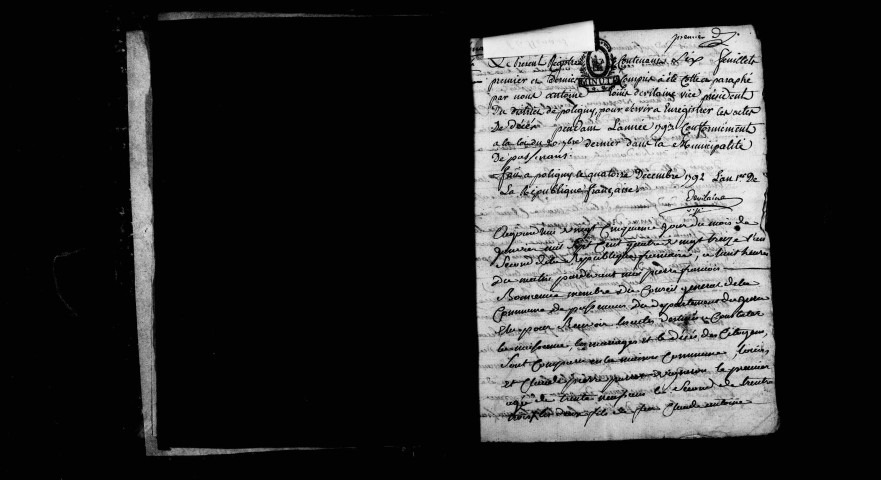 premier
Le present Registre Contenant Six feuillets
premier et Dernier Compris a été Cotté et paraphé
MINUTE
par nous antoine Louis devilaine vice président
du district de poligny, pour servir a Enregistrer les actes
De décès pendant L'année 1793 Conformement
a la loi du 20 7bre dernier dans la Municipalité
de passenans.
fait a poligny le quatorze Décembre 1792 L'an 1er de
La République française
Devilaine
Aujourd'hui vingt Cinquieme jour du mois de
janvier mil Sept Cent quatre vingt treize l'an
Second de la République française, a huit heures
du matin pardevant moi pierre francois
membre du Conseil general de la
Commune de passenans du departement du jura
Elu pour Recevoir les actes destinés a Constater
les naissances, les mariages et le décès des Citoyens,
Sont Comparu en la maison Commune,
et Claude pierre le premier
agé de trente ans le Second de trente
deux fils de feu Claude antoine